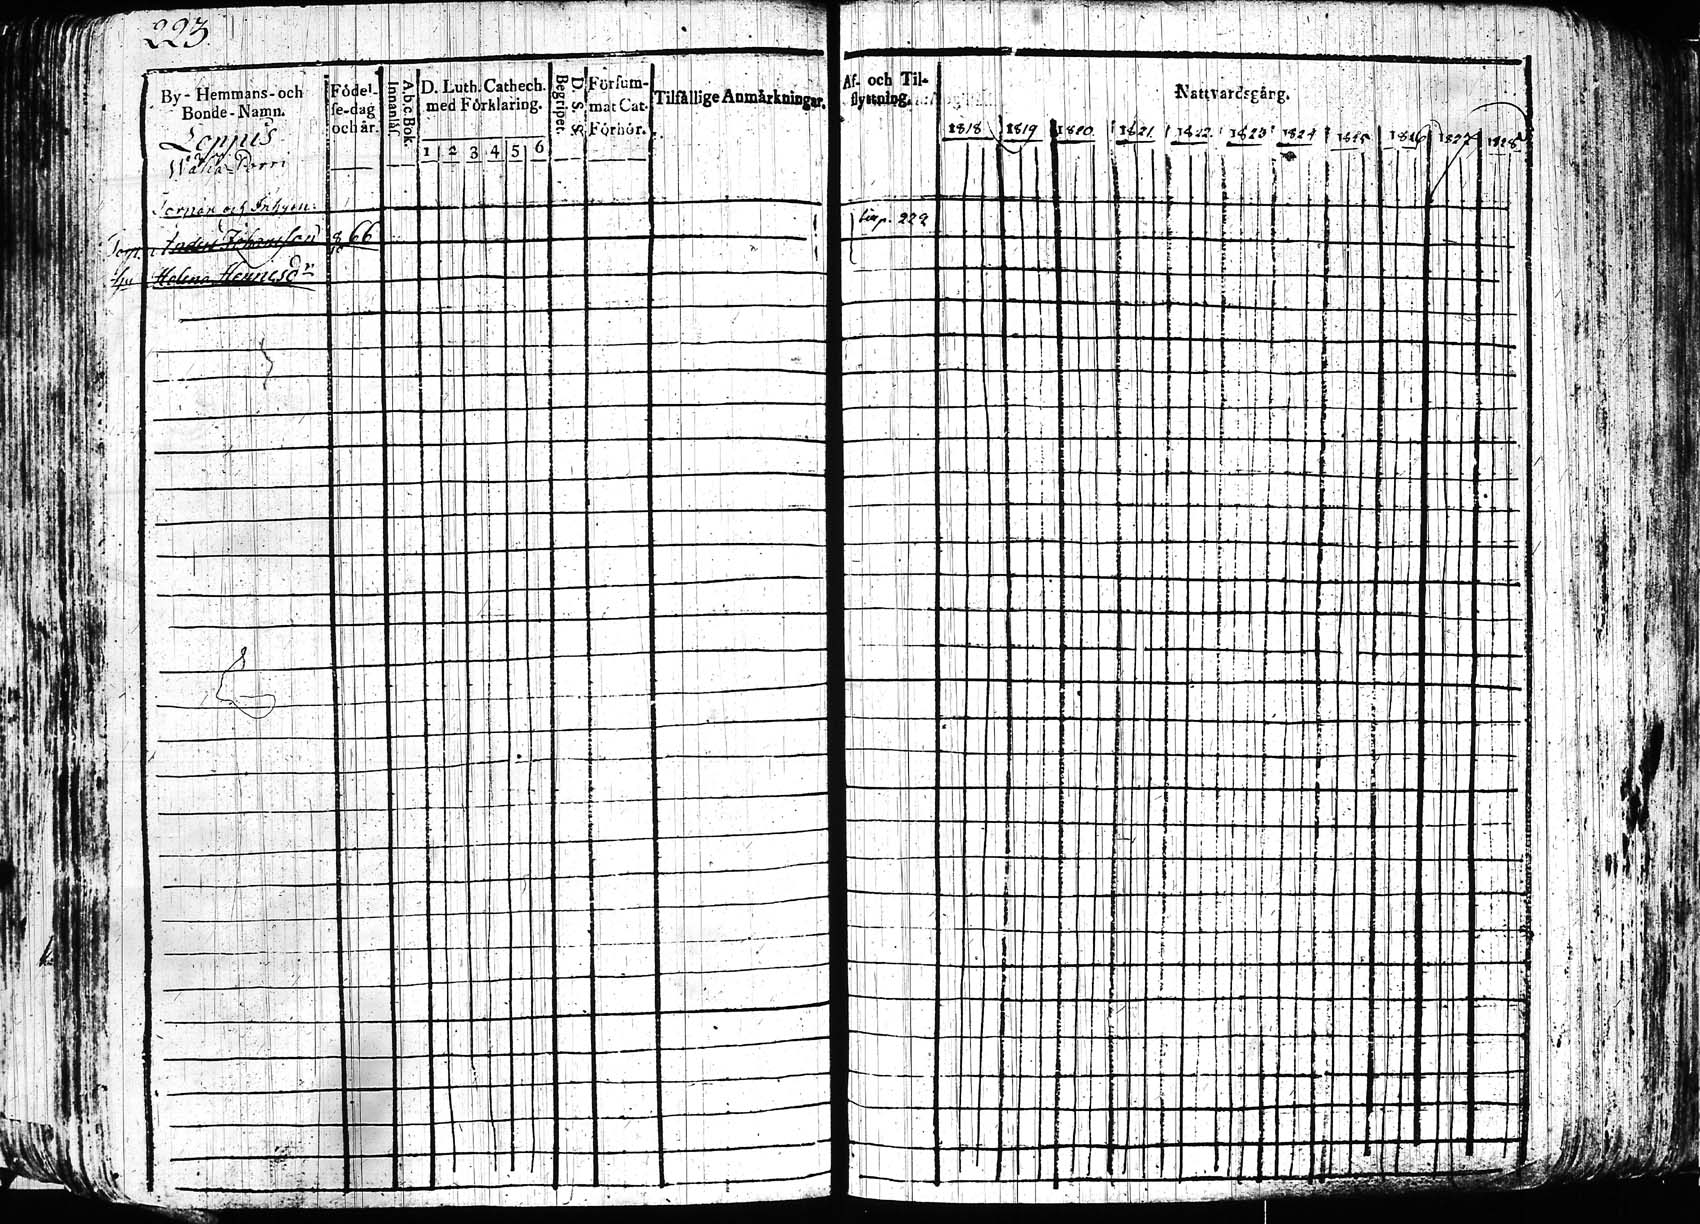 223
By-Hemmans-och
Bonde-Namn.
Födel-
se-dag
och år.
A b c Bok.
Innanläs.
D. Luth. Cathech.
med Förklaring.
1 2 3 4 5 6
D. S. S.
Begripet.
Försum-
mat Cat.
Förhör.
Tilfällige Anmärkningar.
Leppus
Torpar och Inhysn:
Anders Johansson 66
Helena Hennesdr
Af- och Til-
flyttning.
Nattvardsgång.
1818 1819 1820. 1821. 1822. 1823 1824 1825 1826 1827 1828
p. 222